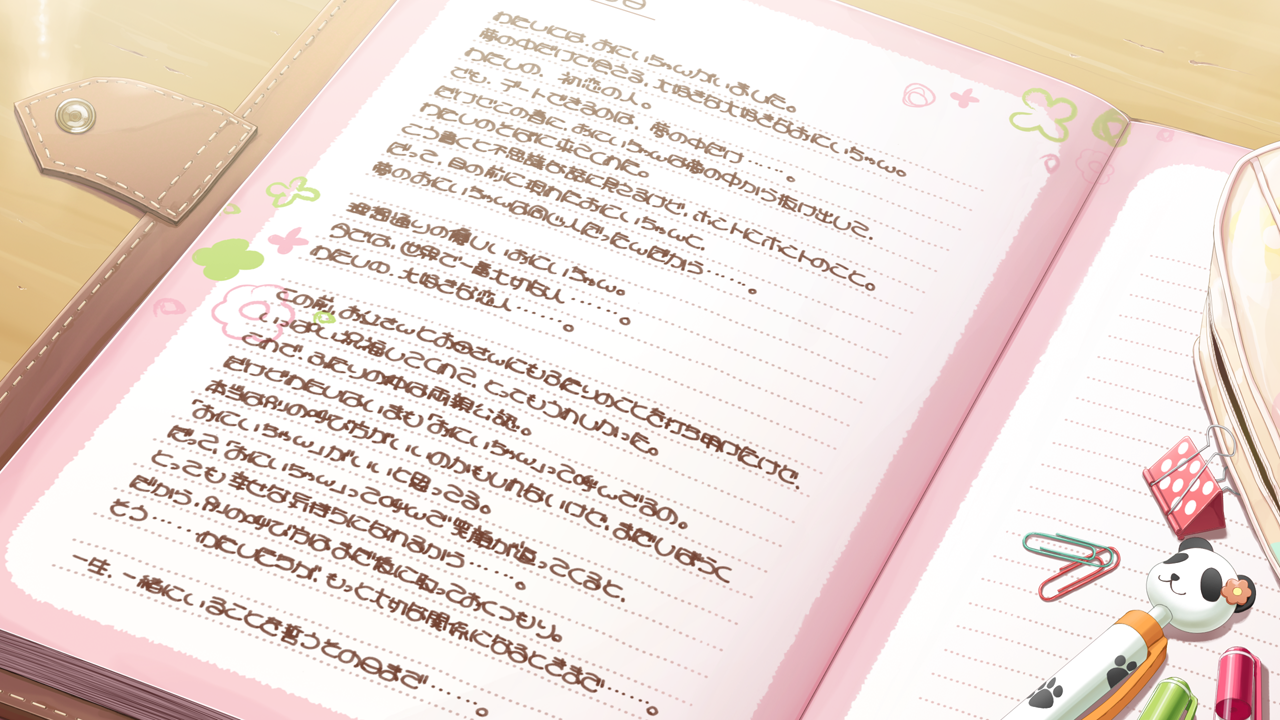 わたしには、おにいちゃんがいました。
夢の中だけで会える、大好きな大好きなおにいちゃん。
わたしの、初恋の人。
でも、デートできるのは、夢の中だけ……。
だけどこの春に、おにいちゃんは夢の中から抜け出して、
わたしのとなりに来てくれた。
こう書くと不思議な話に見えるけど、ホントにホントのこと。
だって、目の前に現れたおにいちゃんと、
夢のおにいちゃんは同じ人だったんだから……。
想像通りの優しいおにいちゃん。
今では、世界で一番大切な人……。
わたしの、大好きな恋人……。
この前、お父さんとお母さんにもふたりのことを打ち明けたけど、
いっぱい祝福してくれて、とってもうれしかった。
これで、ふたりの仲は両親公認。
だけどわたしはいまも「おにいちゃん」って呼んでるの。
本当は別の呼び方がいいのかもしれないけど、まだしばらく
「おにいちゃん」がいいと思ってる。
だって、「おにいちゃん」って呼んで笑顔が返ってくると、
とっても幸せな気持ちになれるから……。
だから、別の呼び方はまだ後に取っておくつもり。
そう……わたしたちが、もっと大切な関係になるときまで……。
一生、一緒にいることを誓うその日まで……。